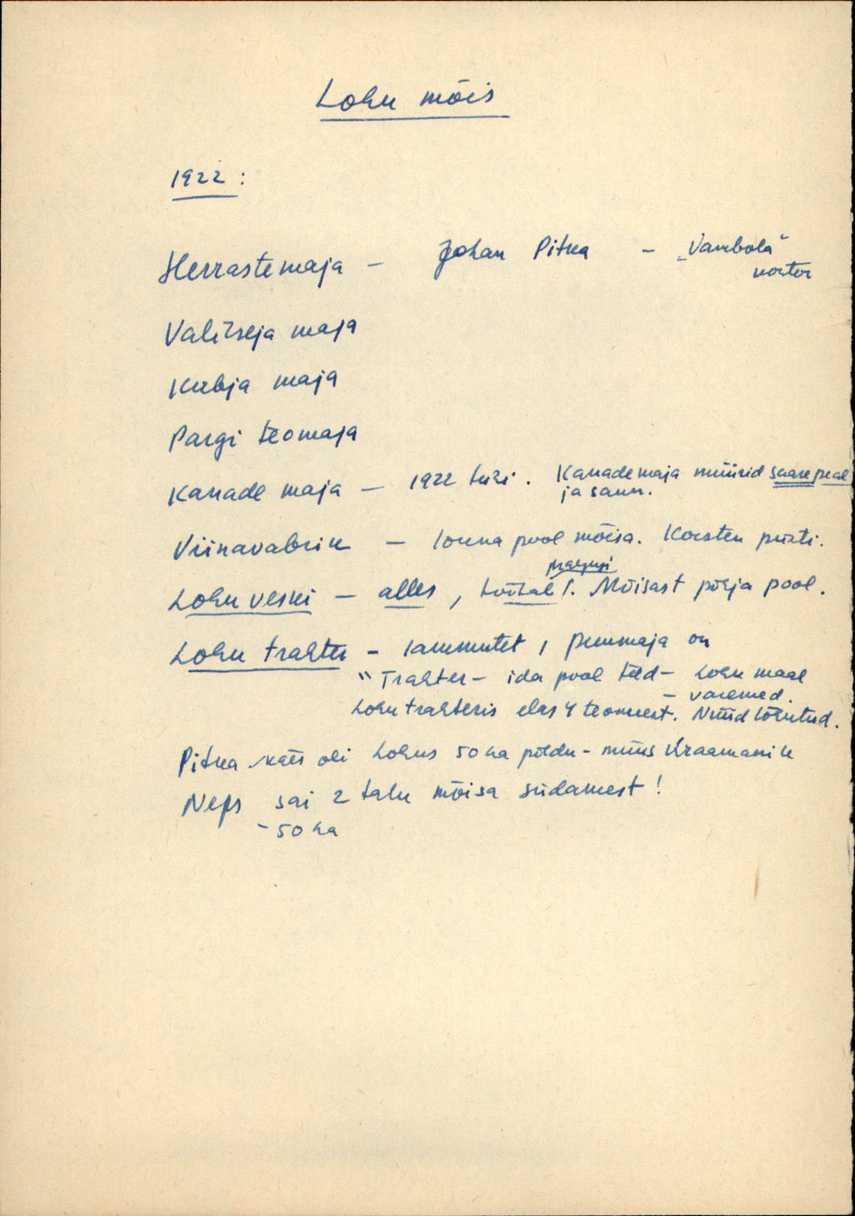 Lohu mõis
1922:
Herrastemaja – Johan Pitka – „Vambola"
Valitseja maja
Kubja maja
Pargi teomaja
Kanade maja – 1922 tuli. Kanademaja müürid saare peal
ja saun.
Viinavabrik – louna pool mõisa. Korsten püsti.
praegugi
Lohu veski – alles, töötab. Mõisast põhja pool.
Lohu trahter – lammutet, puumaja on
"Trahter – ida pool teed – Lohu maal
– varemed.
Lohu trahteris elas 4 teomeest. Nüüd lõhutud.
Pitka käes oli Lohus 50 ha põldu – müüs Kraamanik
Neps sai 2 talu mõisa südamest!
– 50 ha